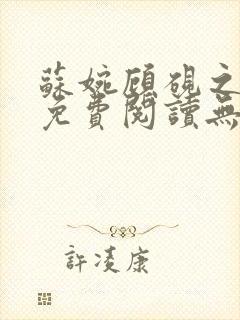 蘇婉顧硯之
免費閱讀無
許凌康